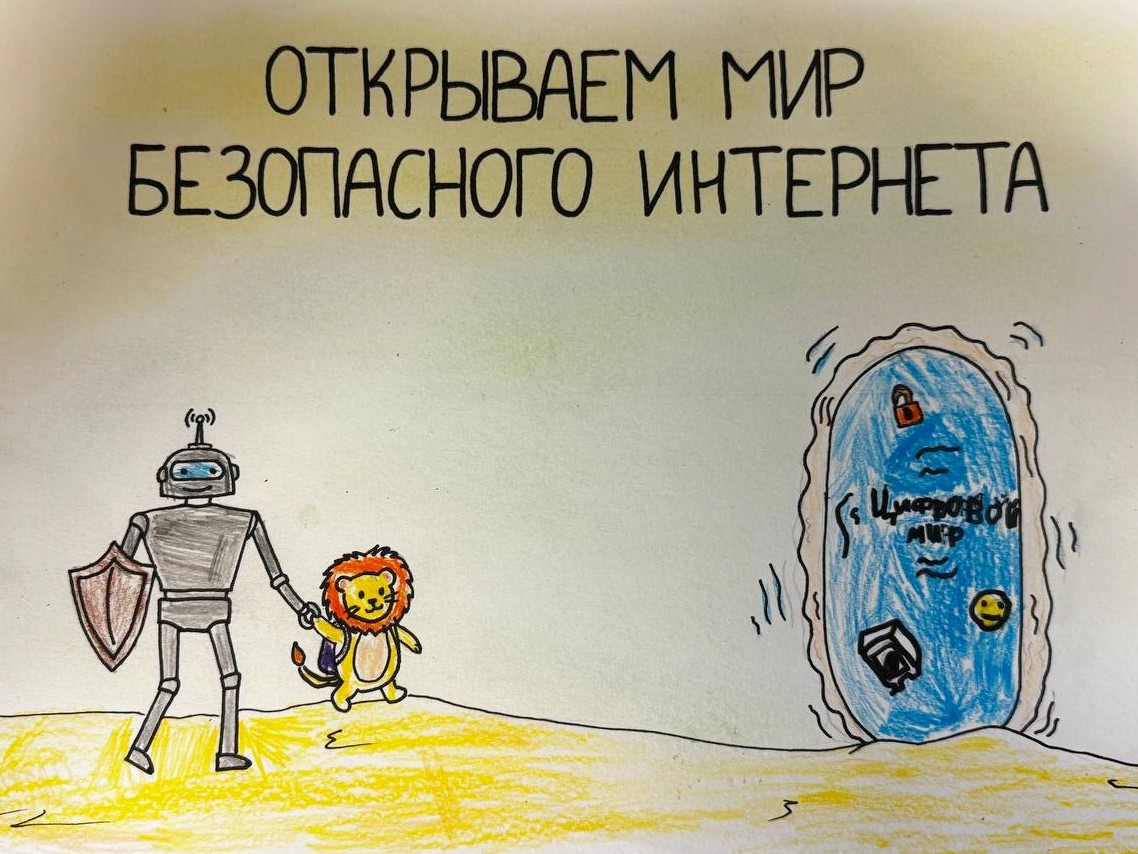 ОТКРЫВАЕМ МИР
БЕЗОПАСНОГО ИНТЕРНЕТА
Цифровой
мир